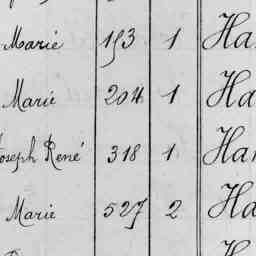 Marié 193 1 Ha
Marié 204 1 Ha
Joseph René 318 1 Ha
Marié 527 2 Ha